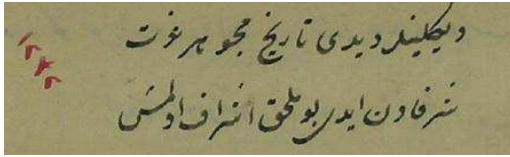 دیکلینلر دیدی تاریخ مجوهر عزت
شرفادن ایدی بو ملحق اشراف اولمش